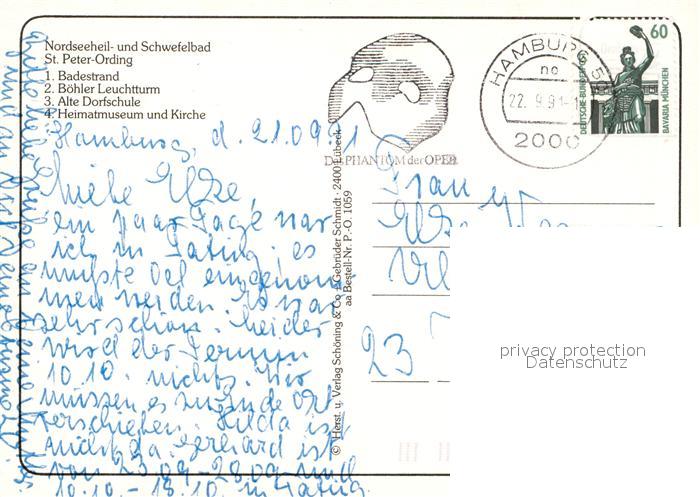 Nordseeheil- und Schwefelbad
St. Peter-Ording
1. Badestrand
2. Böhler Leuchtturm
3. Alte Dorfschule
4. Heimatmuseum und Kirche
Hamburg, d. 21.09.91
Liebe Else,
ein paar Tage war
ich in Tating; es
mußte Oel eingenom
men werden. Es war
sehr schön. Leider
wird der Termin
10.10. nichts. Wir
müssen es zu Ende Okt
verschieben. Hilda ist
auch da. Gerhard ist
von 23.09-28.09 und
10.10.-18.10. in Tating
© Herst. u. Verlag Schöning & Co + Gebrüder Schmidt · 2400 Lübeck
aa Bestell-Nr. P.-O. 1059
DAS PHANTOM der OPER
HAMBURG
no
22.-9.91-
2000
60
DEUTSCHE BUNDESPOST
BAVARIA MÜNCHEN
Frau
Else
23
privacy protection
Datenschutz